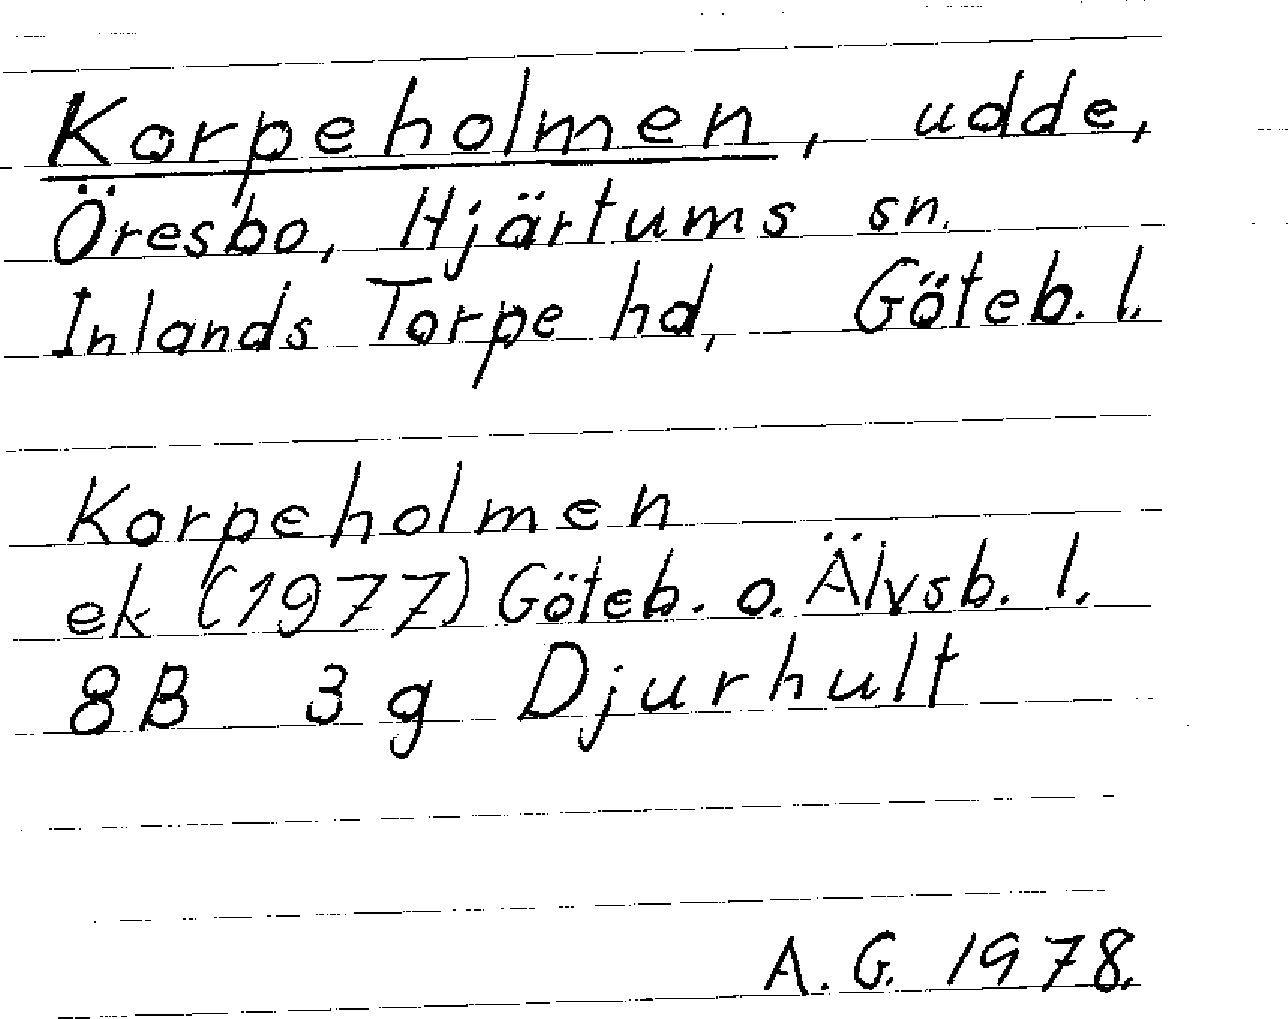 Korpeholmen, udde,
Öresbo, Hjärtums sn.
Inlands Torpe hd, Göteb. l.
Korpeholmen
ek (1977) Göteb. o. Älvsb. l.
8B 3g Djurhult
A. G. 1978.